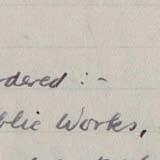 rdered :-
blic Works,